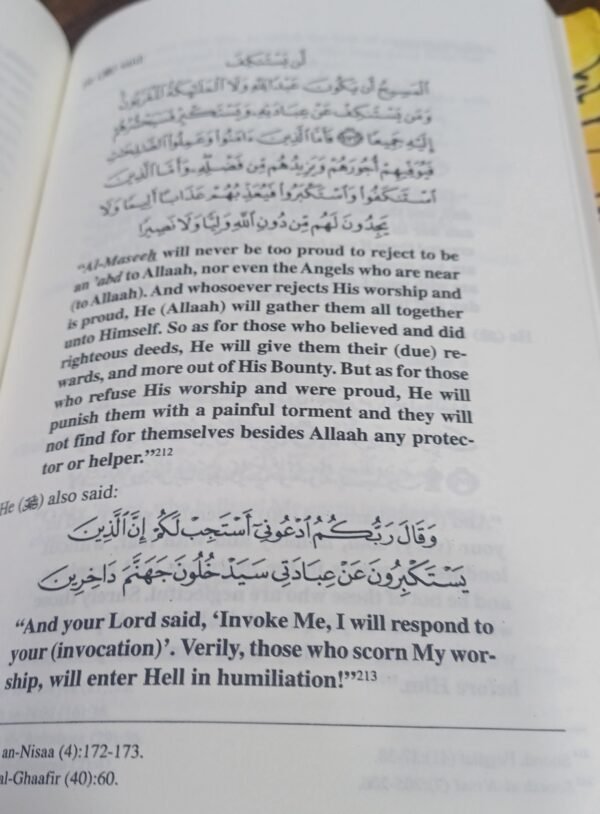 لَّن يَسْتَنكِفَ
الْمَسِيحُ أَن يَكُونَ عَبْدًا لِلَّهِ وَلَا الْمَلَائِكَةُ الْمُقَرَّبُونَ
وَمَن يَسْتَنكِفْ عَنْ عِبَادَتِهِ وَيَسْتَكْبِرْ فَسَيَحْشُرُهُمْ
إِلَيْهِ جَمِيعًا ﴿١٧٢﴾ فَأَمَّا الَّذِينَ ءَامَنُوا وَعَمِلُوا الصَّالِحَاتِ
فَيُوَفِّيهِمْ أُجُورَهُمْ وَيَزِيدُهُم مِّن فَضْلِهِ وَأَمَّا الَّذِينَ
اسْتَنكَفُوا وَاسْتَكْبَرُوا فَيُعَذِّبُهُمْ عَذَابًا أَلِيمًا وَلَا
يَجِدُونَ لَهُم مِّن دُونِ اللَّهِ وَلِيًّا وَلَا نَصِيرًا
“Al-Maseeh will never be too proud to reject to be
an ‘abd to Allaah, nor even the Angels who are near
(to Allaah). And whosoever rejects His worship and
is proud, He (Allaah) will gather them all together
unto Himself. So as for those who believed and did
righteous deeds, He will give them their (due) re-
wards, and more out of His Bounty. But as for those
who refuse His worship and were proud, He will
punish them with a painful torment and they will
not find for themselves besides Allaah any protec-
tor or helper.”212
He (ﷻ) also said:
وَقَالَ رَبُّكُمُ ادْعُونِي أَسْتَجِبْ لَكُمْ إِنَّ الَّذِينَ
يَسْتَكْبِرُونَ عَنْ عِبَادَتِي سَيَدْخُلُونَ جَهَنَّمَ دَاخِرِينَ
“And your Lord said, ‘Invoke Me, I will respond to
your (invocation)’. Verily, those who scorn My wor-
ship, will enter Hell in humiliation!”213
an-Nisaa (4):172-173.
al-Ghaafir (40):60.